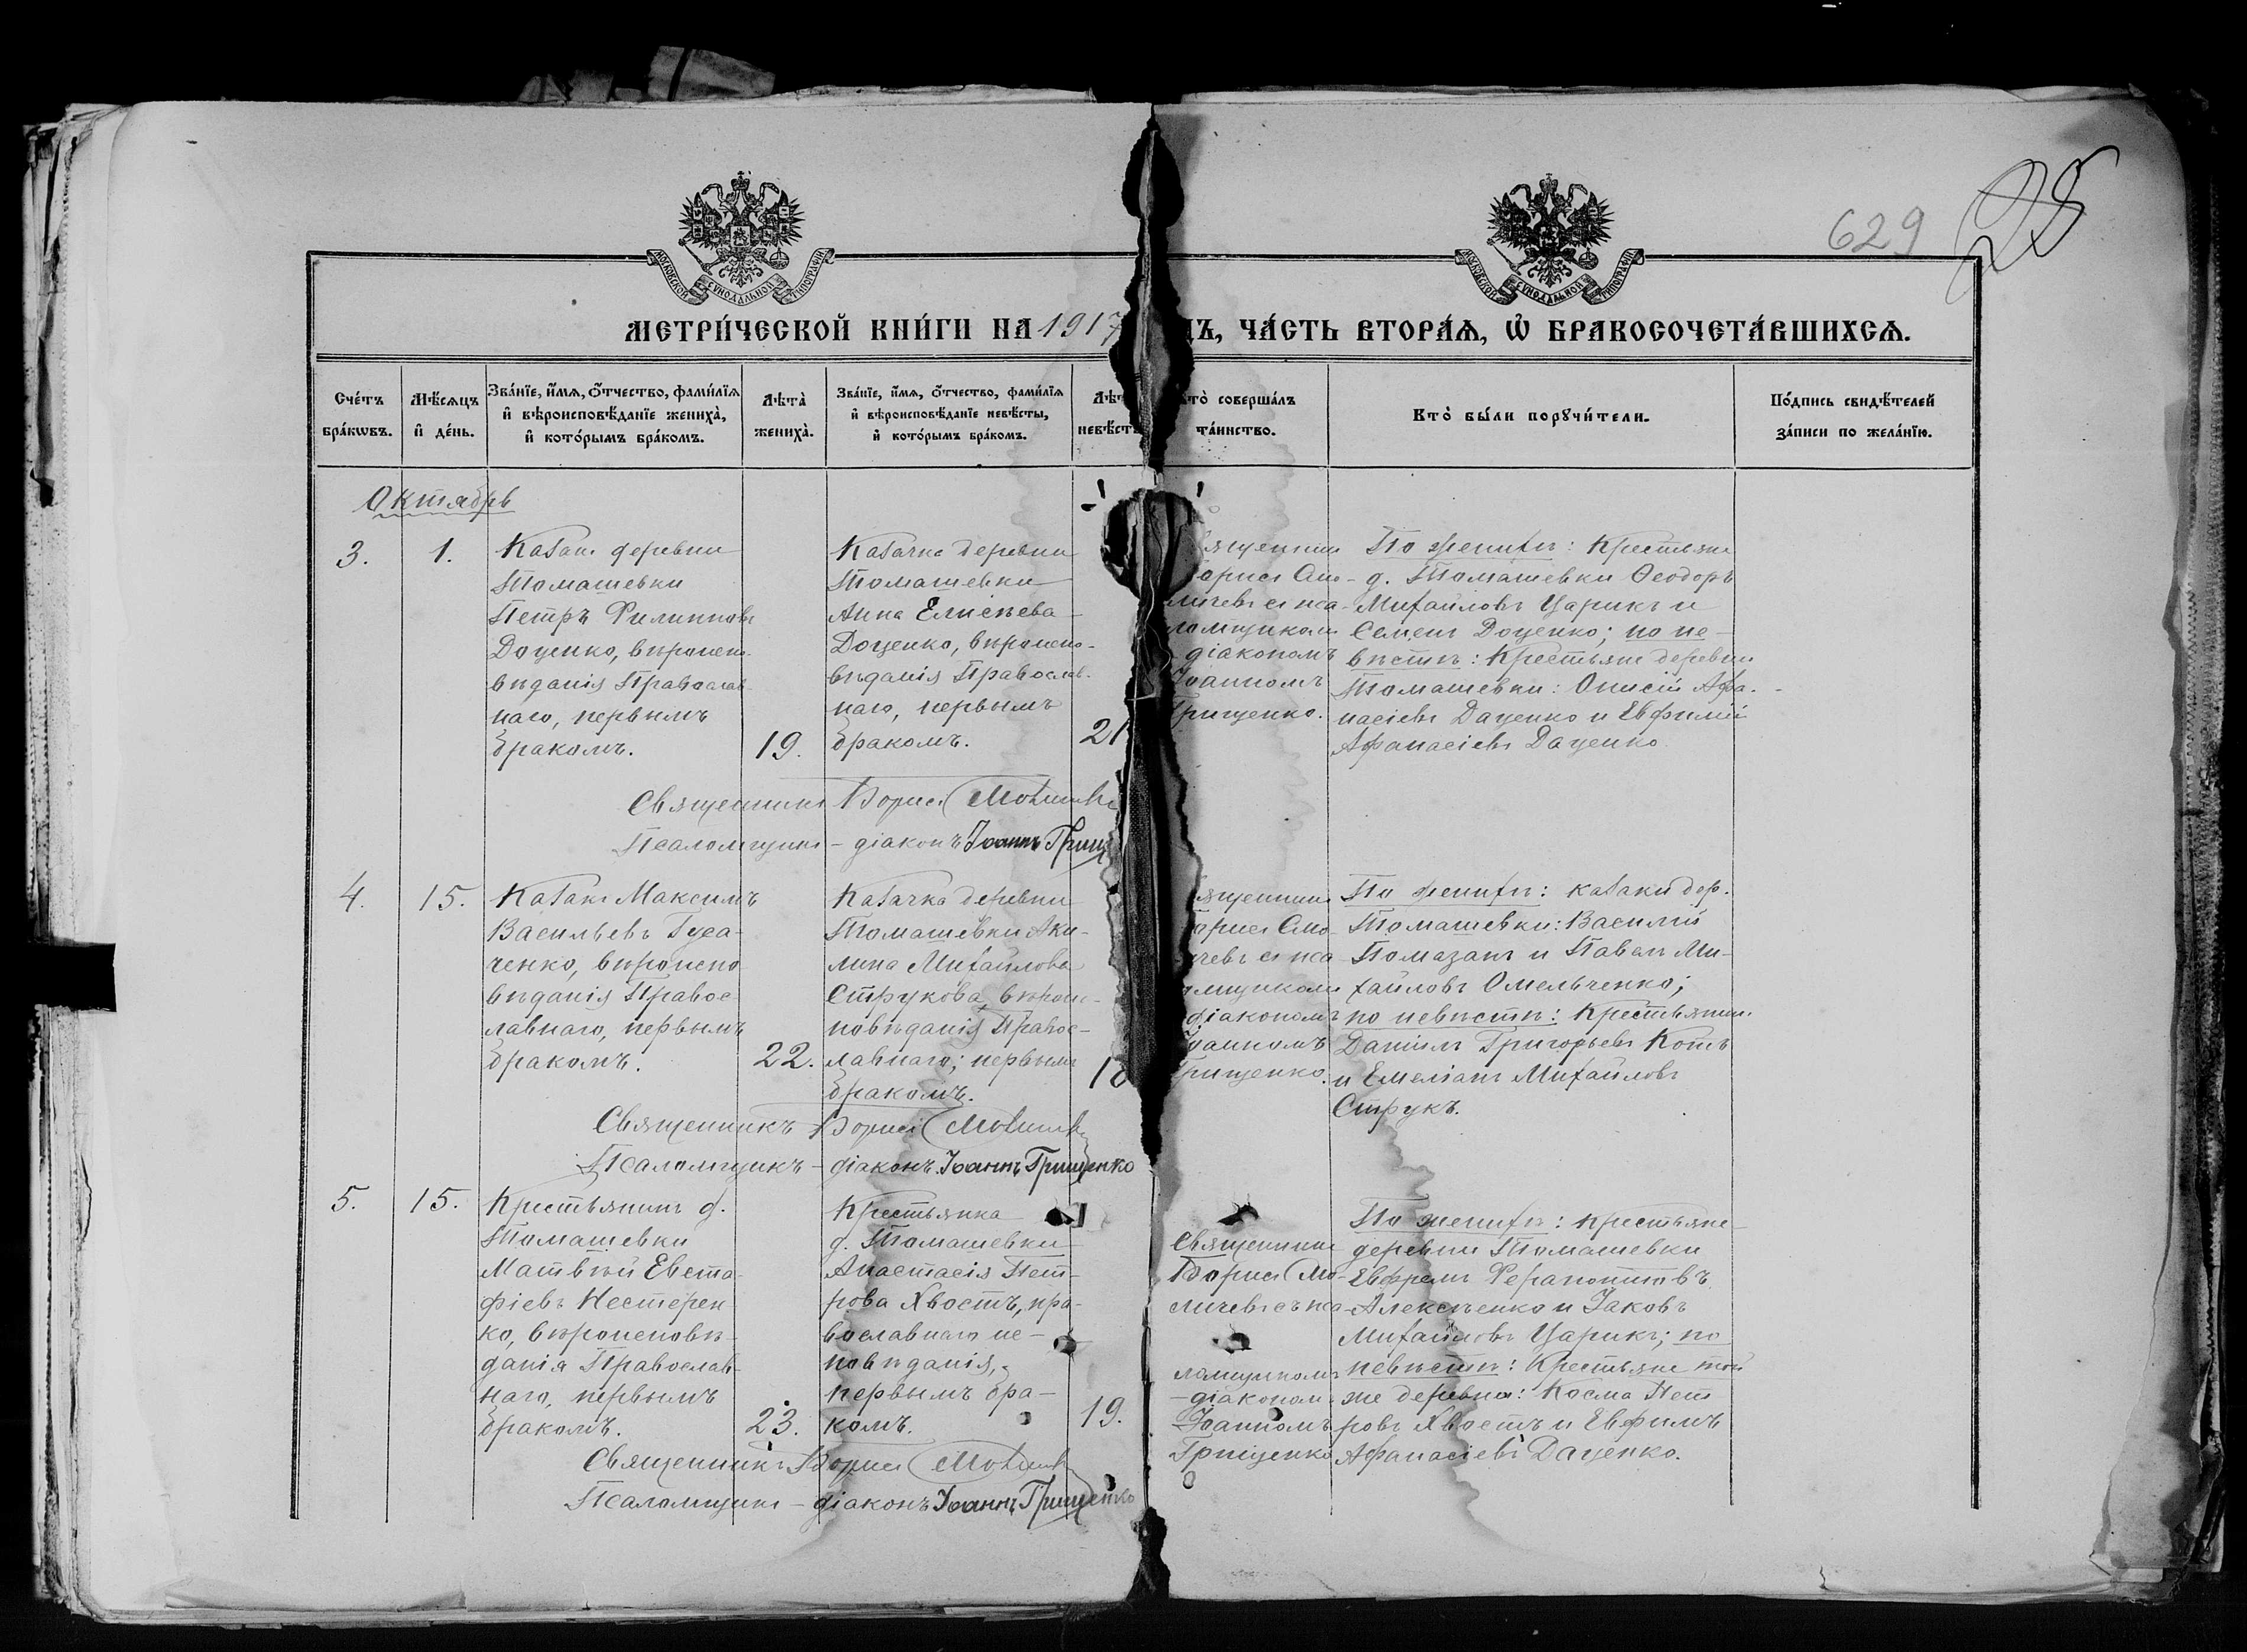 629
25
МОСКОВСКОЙ СѴНОДАЛЬНОЙ ТИПОГРАФІИ
МОСКОВСКОЙ СѴНОДАЛЬНОЙ ТИПОГРАФІИ
МЕТРИ́ЧЕСКОЙ КНИ́ГИ НА 1917
ДЪ, ЧА́СТЬ ВТОРА́Ѧ, Ѽ БРАКОСОЧЕТА́ВШИХСѦ.
Сче́тъ бра́кѡвъ.
Мѣ́сѧцъ и҆ де́нь.
Зва́нїе, и҆́мѧ, ѻ҆́тчество, фами́лїѧ и҆ вѣроисповѣ́данїе жениха̀, и҆ кото́рымъ бра́комъ.
Лѣта̀ жениха̀.
Зва́нїе, и҆́мѧ, ѻ҆́тчество, фами́лїѧ и҆ вѣроисповѣ́данїе невѣ́сты, и҆ кото́рымъ бра́комъ.
Лѣт невѣст
то̀ соверша́лъ та́инство.
Кто̀ бы́ли порꙋчи́тели.
По́дпись свидѣ́телей за́писи по жела́нїю.
Октябрь
3.
1.
Казакъ деревни
Томашевки
Петръ Филипповъ
Доценко, вѣроиспо-
вѣданія Православ-
наго, первымъ
бракомъ.
19.
Казачка деревни
Томашевки
Анна Елисѣева
Доценко, вѣроиспо-
вѣданія Православ-
наго, первымъ
бракомъ.
21
ященникъ
орисъ Смо-
личевъ съ пса-
ломщикомъ
діакономъ
Іоанномъ
Грищенко.
По женихѣ: Крестьяне
д. Томашевки Ѳеодоръ
Михайловъ Царикъ и
Семенъ Доценко; по не-
вѣстѣ: Крестьяне деревни
Томашевки: Онисій Афа-
насіевъ Даценко и Евфимій
Афанасіевъ Даценко.
Священникъ Борисъ Смоличевъ
Псаломщикъ - діаконъ Іоаннъ Грищ
4.
15.
Казакъ Максимъ
Васильевъ Гуса-
ченко, вѣроиспо-
вѣданія Правос-
лавнаго, первымъ
бракомъ.
22.
Казачка деревни
Томашевки Аки-
лина Михайлова
Струкова, вѣроис-
повѣданія Правос-
лавнаго; первымъ
бракомъ.
18
ященникъ
орисъ Смо-
ичевъ съ пса
омщикомъ
діакономъ
Іоанномъ
Грищенко.
По женихѣ: казаки дер.
Томашевки: Василій
Помазанъ и Павелъ Ми-
хайловъ Омельченко;
по невѣстѣ: Крестьянинъ
Даніилъ Григорьевъ Котъ
и Емеліанъ Михайловъ
Струкъ.
Священникъ Борисъ Смоличевъ
Псаломщикъ - діаконъ Іоаннъ Грищенко
5.
15.
Крестьянинъ д.
Томашевки
Матвѣй Евста-
фіевъ Нестерен-
ко, вѣроисповѣ-
данія Православ-
наго, первымъ
бракомъ.
23.
Крестьянка
д. Томашевки
Анастасія Пет-
рова Хвостъ, пра-
вославнаго ис-
повѣданія,
первымъ бра-
комъ.
19.
Священникъ
Борисъ Смо-
личевъ съ пса-
ломщикомъ
-діакономъ
Іоанномъ
Грищенко
По женихѣ: крестьяне
деревни Томашевки
Ефремъ Ферапонтовъ
Алексѣенко и Іаковъ
Михайловъ Царикъ; по
невѣстѣ: Крестьяне той
же деревни: Косма Пет
ровъ Хвостъ и Евфимъ
Афанасіевъ Даценко.
Священникъ Борисъ Смоличевъ
Псаломщикъ - діаконъ Іоаннъ Грищенко